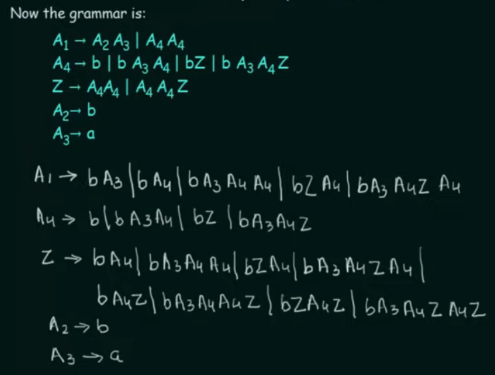 Now the grammar is:
A₁ → A₂ A₃ | A₄ A₄
A₄ → b | b A₃ A₄ | bZ | b A₃ A₄ Z
Z → A₄A₄ | A₄ A₄ Z
A₂ → b
A₃ → a
A₁ → bA₃ | bA₄ | bA₃ A₄ A₄ | bZ A₄ | bA₃ A₄Z A₄
A₄ → b | bA₃A₄ | bZ | bA₃A₄Z
Z → bA₄ | bA₃A₄ A₄ | bZA₄ | bA₃ A₄ZA₄ |
bA₄Z | bA₃A₄A₄Z | bZA₄Z | bA₃A₄Z A₄Z
A₂ → b
A₃ → a